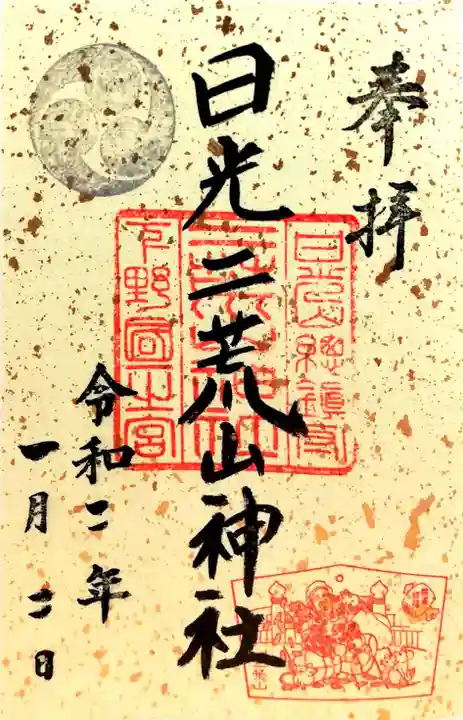 奉拝
日光二荒山神社
令和二年
一月二日
日光山総鎮守
二荒山神社
下野國一宮